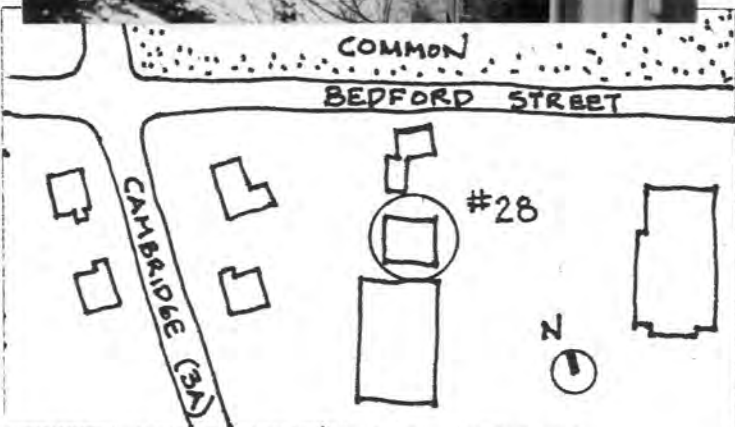 COMMON
BEDFORD STREET
CAMBRIDGE (3A)
#28
N